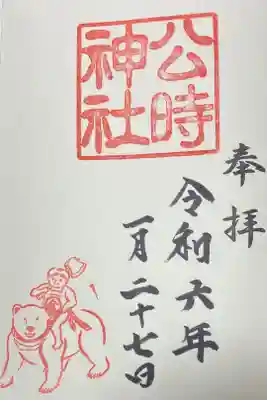 公時
神社
奉拝
令和六年
一月二十七日